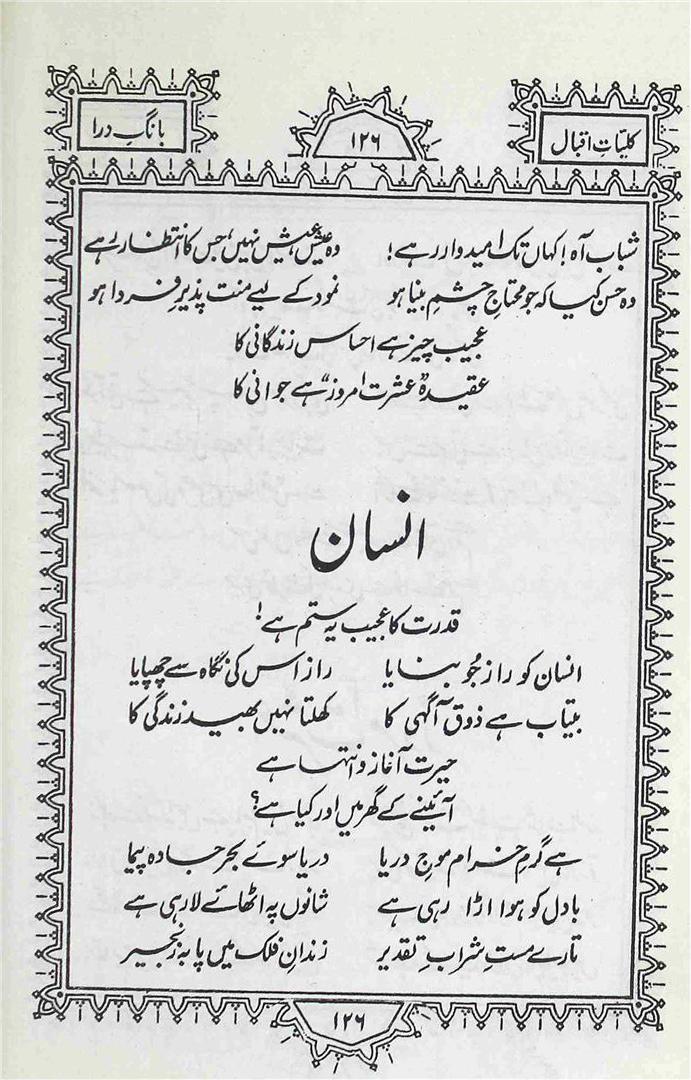 کلیّاتِ اقبال ۱۲۶ بانگِ درا
شباب آہ! کہاں تک امیدوار رہے! وہ عیش، عیش نہیں، جس کا انتظار رہے
وہ حسن کیا کہ جو محتاجِ چشمِ بینا ہو نمود کے لیے منت پذیرِ فردا ہو
عجیب چیز ہے احساس زندگانی کا
عقیدہ "عشرت امروز" ہے جوانی کا
انسان
قدرت کا عجیب یہ ستم ہے!
انسان کو راز جُو بنایا راز اس کی نگاہ سے چھپایا
بیتاب ہے ذوق آگہی کا کھلتا نہیں بھید زندگی کا
حیرت آغاز و انتہا ہے
آئینے کے گھر میں اور کیا ہے؟
ہے گرمِ خرام موجِ دریا دریا سوئے بحر جادہ پیما
بادل کو ہوا اڑا رہی ہے شانوں پہ اٹھائے لا رہی ہے
تارے مستِ شرابِ تقدیر زندانِ فلک میں پا بہ زنجیر
۱۲۶